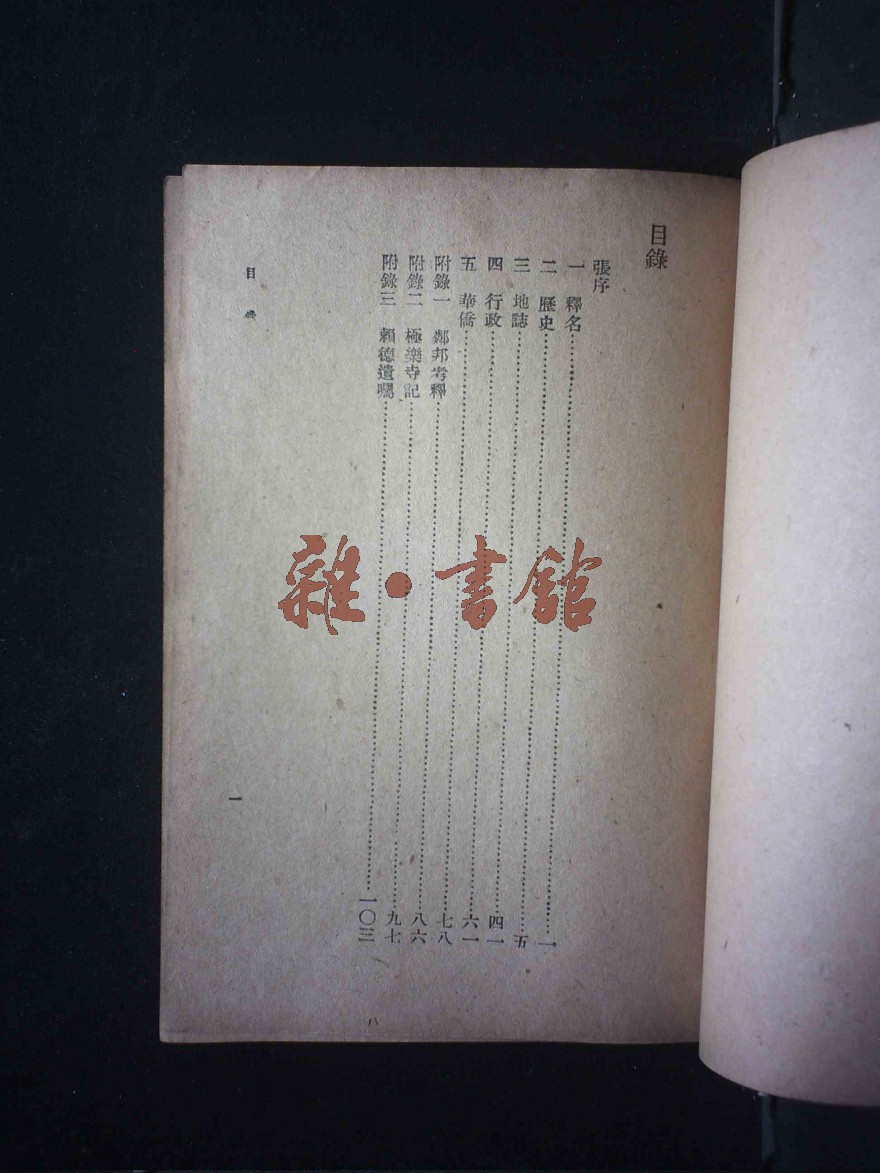 目錄
張序
一 釋名⋯⋯一
二 歷史⋯⋯五
三 地誌⋯⋯四一
四 行政⋯⋯六一
五 華僑⋯⋯七八
附錄一 鄰邦考釋⋯⋯八六
附錄二 極樂寺記⋯⋯九七
附錄三 賴德遺囑⋯⋯一〇三
目 錄
一
八
雜•書館